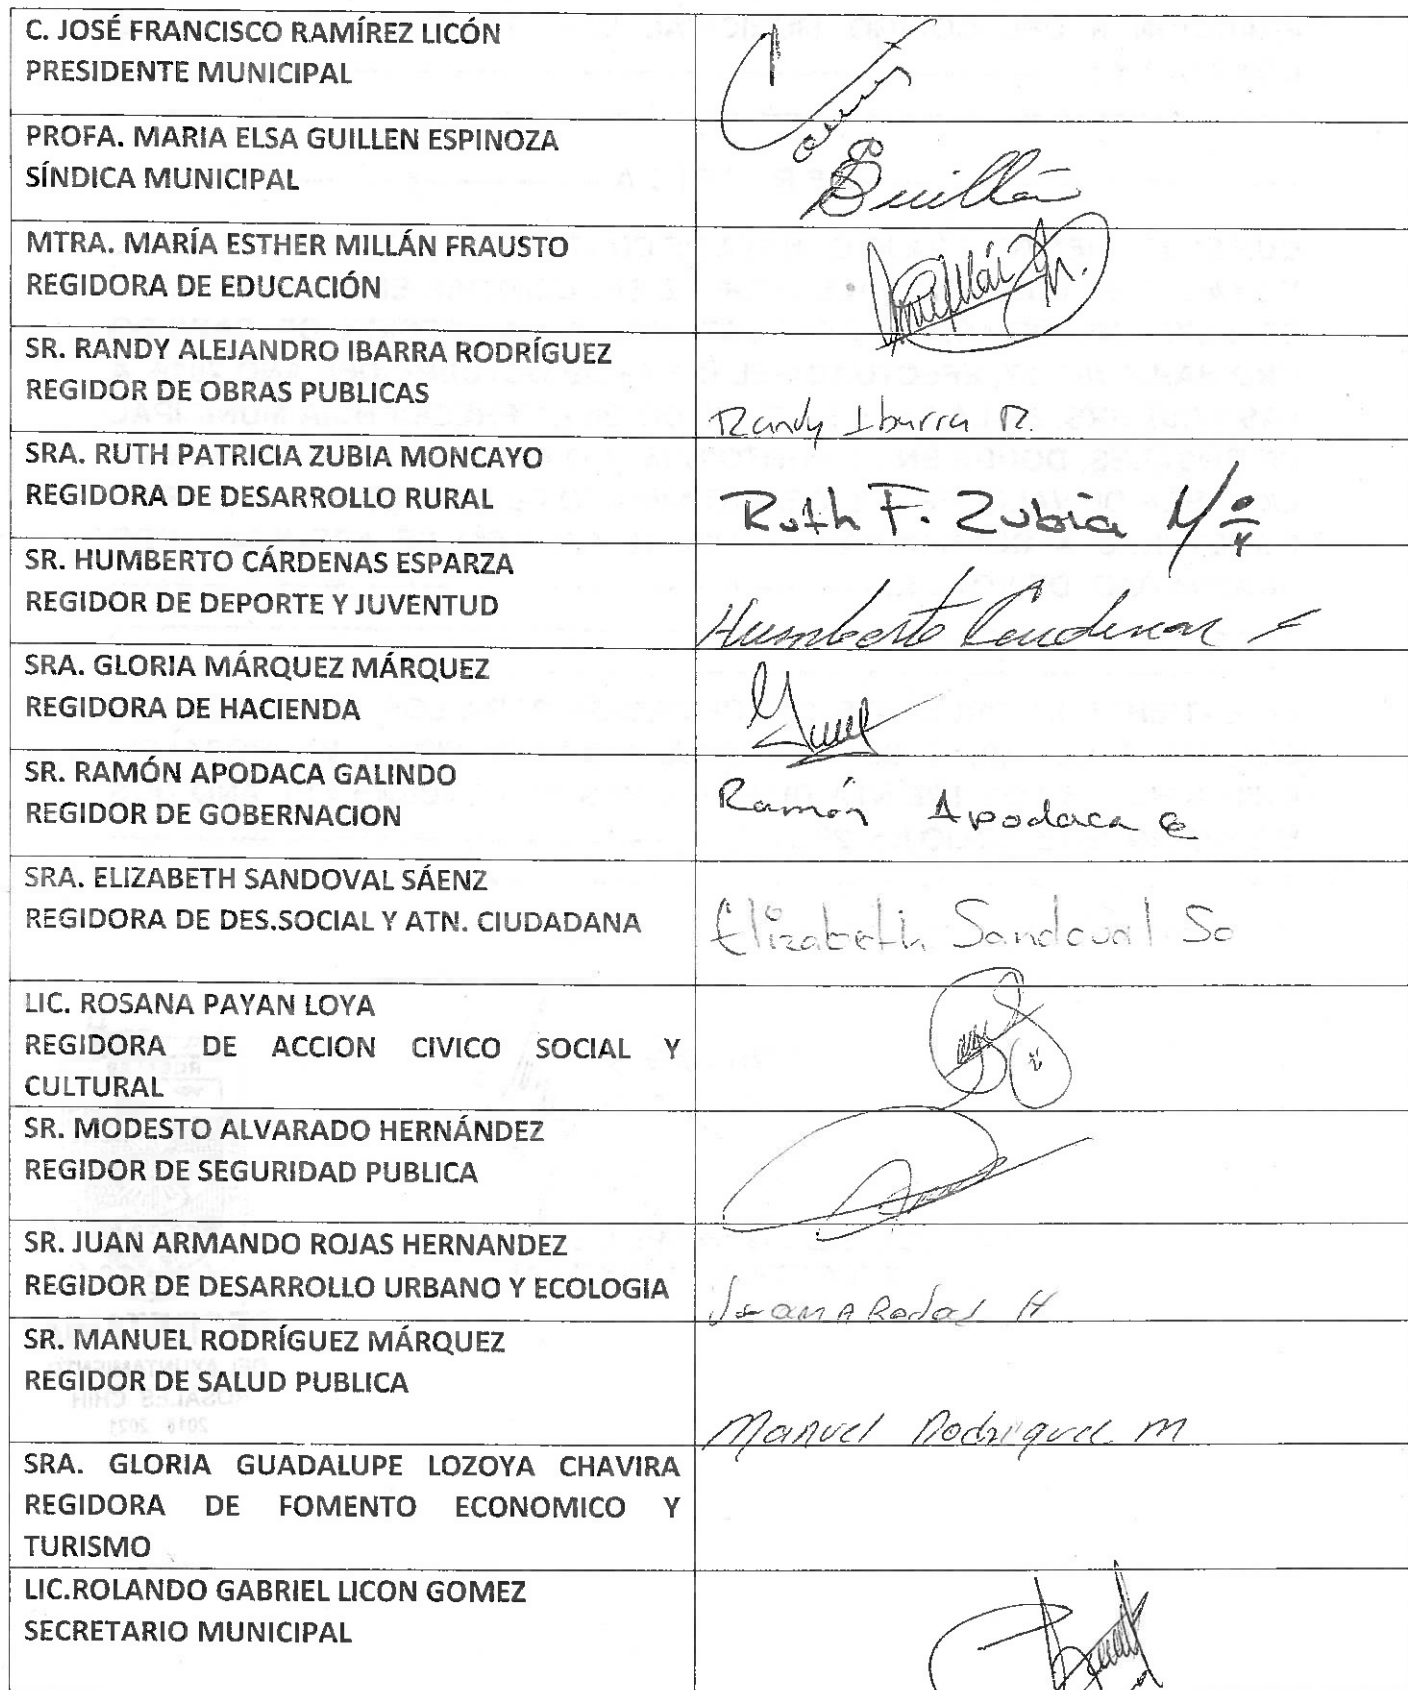 C. JOSÉ FRANCISCO RAMÍREZ LICÓN
PRESIDENTE MUNICIPAL
PROFA. MARIA ELSA GUILLEN ESPINOZA
SÍNDICA MUNICIPAL
Guillén
MTRA. MARÍA ESTHER MILLÁN FRAUSTO
REGIDORA DE EDUCACIÓN
SR. RANDY ALEJANDRO IBARRA RODRÍGUEZ
REGIDOR DE OBRAS PUBLICAS
Randy Ibarra R.
SRA. RUTH PATRICIA ZUBIA MONCAYO
REGIDORA DE DESARROLLO RURAL
Ruth P. Zubia
SR. HUMBERTO CÁRDENAS ESPARZA
REGIDOR DE DEPORTE Y JUVENTUD
Humberto Cardenas
SRA. GLORIA MÁRQUEZ MÁRQUEZ
REGIDORA DE HACIENDA
SR. RAMÓN APODACA GALINDO
REGIDOR DE GOBERNACION
Ramón Apodaca G
SRA. ELIZABETH SANDOVAL SÁENZ
REGIDORA DE DES.SOCIAL Y ATN. CIUDADANA
Elizabeth Sandoval Sa
LIC. ROSANA PAYAN LOYA
REGIDORA DE ACCION CIVICO SOCIAL Y
CULTURAL
SR. MODESTO ALVARADO HERNÁNDEZ
REGIDOR DE SEGURIDAD PUBLICA
SR. JUAN ARMANDO ROJAS HERNANDEZ
REGIDOR DE DESARROLLO URBANO Y ECOLOGIA
Juan A Rojas H
SR. MANUEL RODRÍGUEZ MÁRQUEZ
REGIDOR DE SALUD PUBLICA
Manuel Rodriguez M
SRA. GLORIA GUADALUPE LOZOYA CHAVIRA
REGIDORA DE FOMENTO ECONOMICO Y
TURISMO
LIC.ROLANDO GABRIEL LICON GOMEZ
SECRETARIO MUNICIPAL